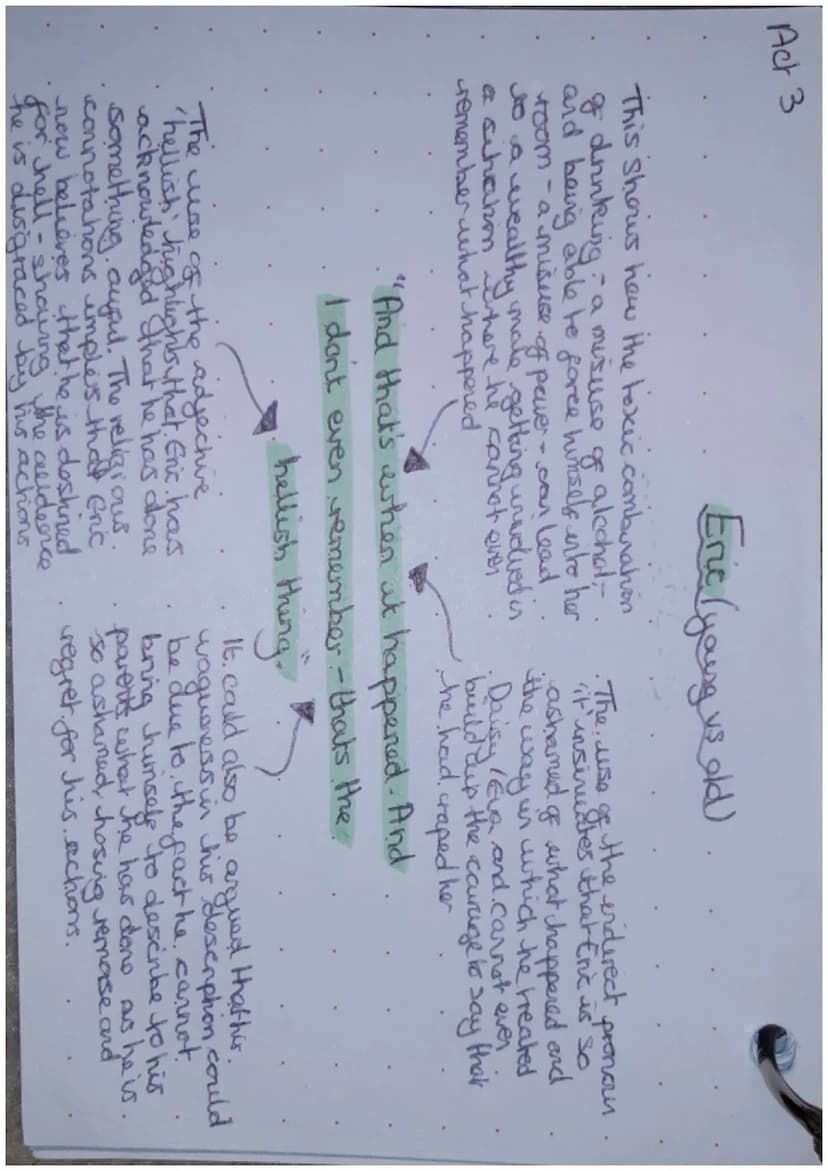 Act 3
Eric (young vs old)
This shows how the toxic combination
of drinking - a misuse of alcohol -
and being able to force himself into her
room - a misuse of power - can lead
to a wealthy male getting involved in
a situation where he cannot even
remember what happened
. The use of the indirect pronoun
'it' insinuates that Eric is so
ashamed of what happened and
the way in which he treated
Daisy/Eva and cannot even
build up the courage to say that
he had raped her
"And that's when it happened. And
I don't even remember - thats the
hellish thing."
The use of the adjective
'hellish' highlights that Eric has
acknowledged that he has done
something awful. The religious
connotations implies that Eric
now believes that he is destined
for hell - showing the audience
he is disgraced by his actions
It could also be argued that his
vagueness in his description could
be due to the fact he cannot
bring himself to describe to his
parents what he has done as he is
so ashamed, hosing remorse and
regret for his actions.